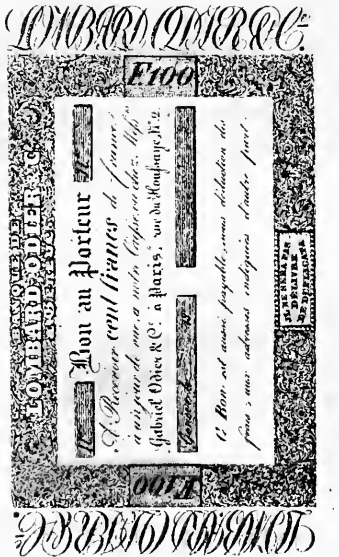 LOMBARD ODIER & Cie.
F100
BANQUE DE
LOMBARD, ODIER & Cie
Bon au Porteur
A Recevoir cent francs de france,
à un jour de vue, à notre Caisse, ou chez Mess.rs
Gabriel Odier & Ce. à Paris, rue du Houssaye No. 2.
Ce Bon est aussi payable, sous déduction de
frais, aux adresses indiquées d'autre part.
IL NE SERA PAS
DÉLIVRÉ
DE DUPLICATA
F100
LOMBARD ODIER & Cie.